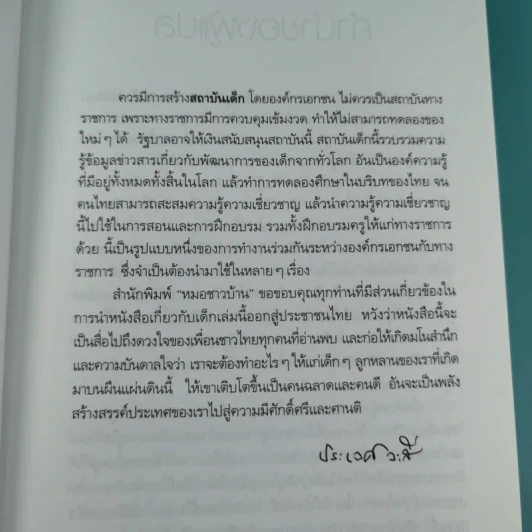 ควรมีการสร้างสถาบันเด็ก โดยองค์กรเอกชน ไม่ควรเป็นสถาบันทาง
ราชการ เพราะทางราชการมีการควบคุมเข้มงวด ทำให้ไม่สามารถทดลองของ
ใหม่ ๆ ได้ รัฐบาลอาจให้เงินสนับสนุนสถาบันนี้ สถาบันเด็กนี้รวบรวมความ
รู้ข้อมูลข่าวสารเกี่ยวกับพัฒนาการของเด็กจากทั่วโลก อันเป็นองค์ความรู้
ที่มีอยู่ทั้งหมดทั้งสิ้นในโลก แล้วทำการทดลองศึกษาในบริบทของไทย จน
คนไทยสามารถสะสมความรู้ความเชี่ยวชาญ แล้วนำความรู้ความเชี่ยวชาญ
นี้ไปใช้ในการสอนและการฝึกอบรม รวมทั้งฝึกอบรมครูให้แก่ทางราชการ
ด้วย นี้เป็นรูปแบบหนึ่งของการทำงานร่วมกันระหว่างองค์กรเอกชนกับทาง
ราชการ ซึ่งจำเป็นต้องนำมาใช้ในหลาย ๆ เรื่อง
สำนักพิมพ์ "หมอชาวบ้าน" ขอขอบคุณทุกท่านที่มีส่วนเกี่ยวข้องใน
การนำหนังสือเกี่ยวกับเด็กเล่มนี้ออกสู่ประชาชนไทย หวังว่าหนังสือนี้จะ
เป็นสื่อไปถึงดวงใจของเพื่อนชาวไทยทุกคนที่อ่านพบ และก่อให้เกิดมโนสำนึก
และความบันดาลใจว่า เราจะต้องทำอะไร ๆ ให้แก่เด็ก ๆ ลูกหลานของเราที่เกิด
มาบนผืนแผ่นดินนี้ ให้เขาเติบโตขึ้นเป็นคนฉลาดและคนดี อันจะเป็นพลัง
สร้างสรรค์ประเทศของเราไปสู่ความมีศักดิ์ศรีและศานติ
ประเวศ วะสี